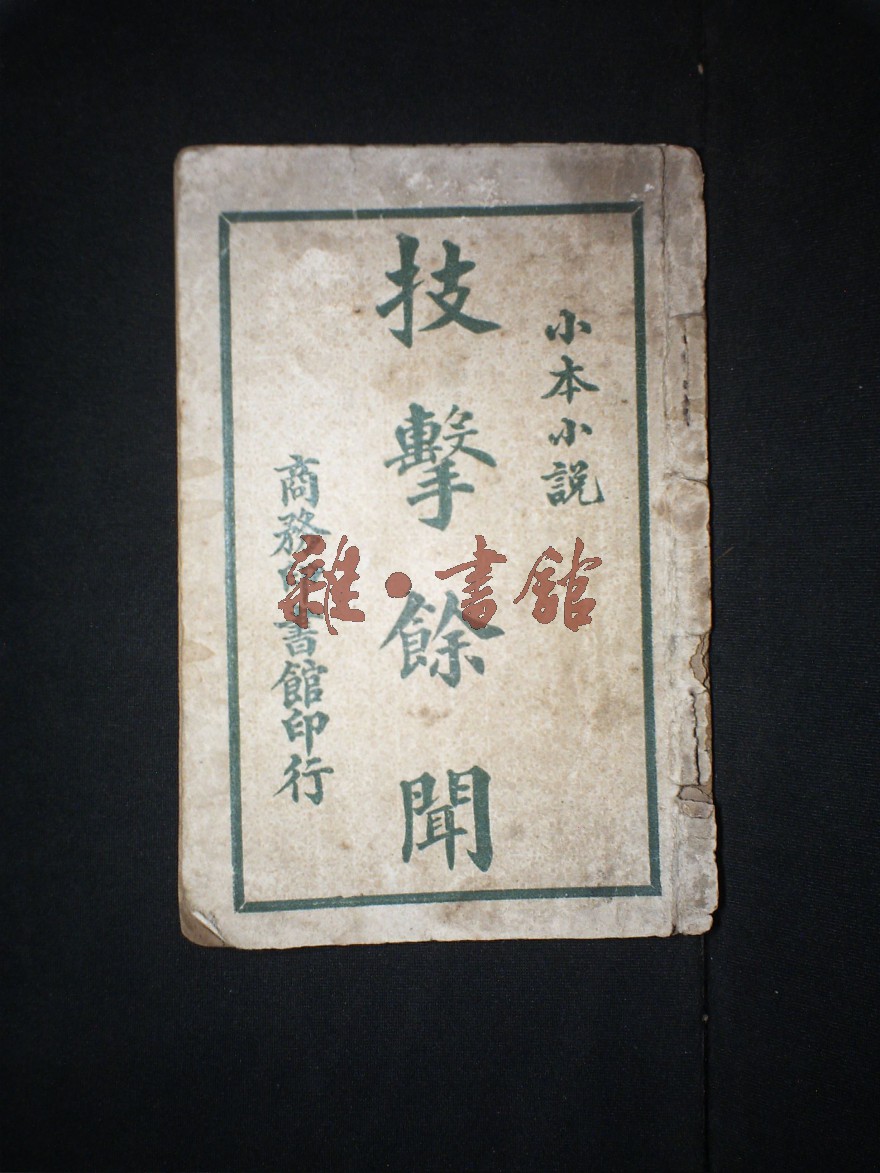 小本小説
技擊餘聞
商務印書館印行
雜•書館